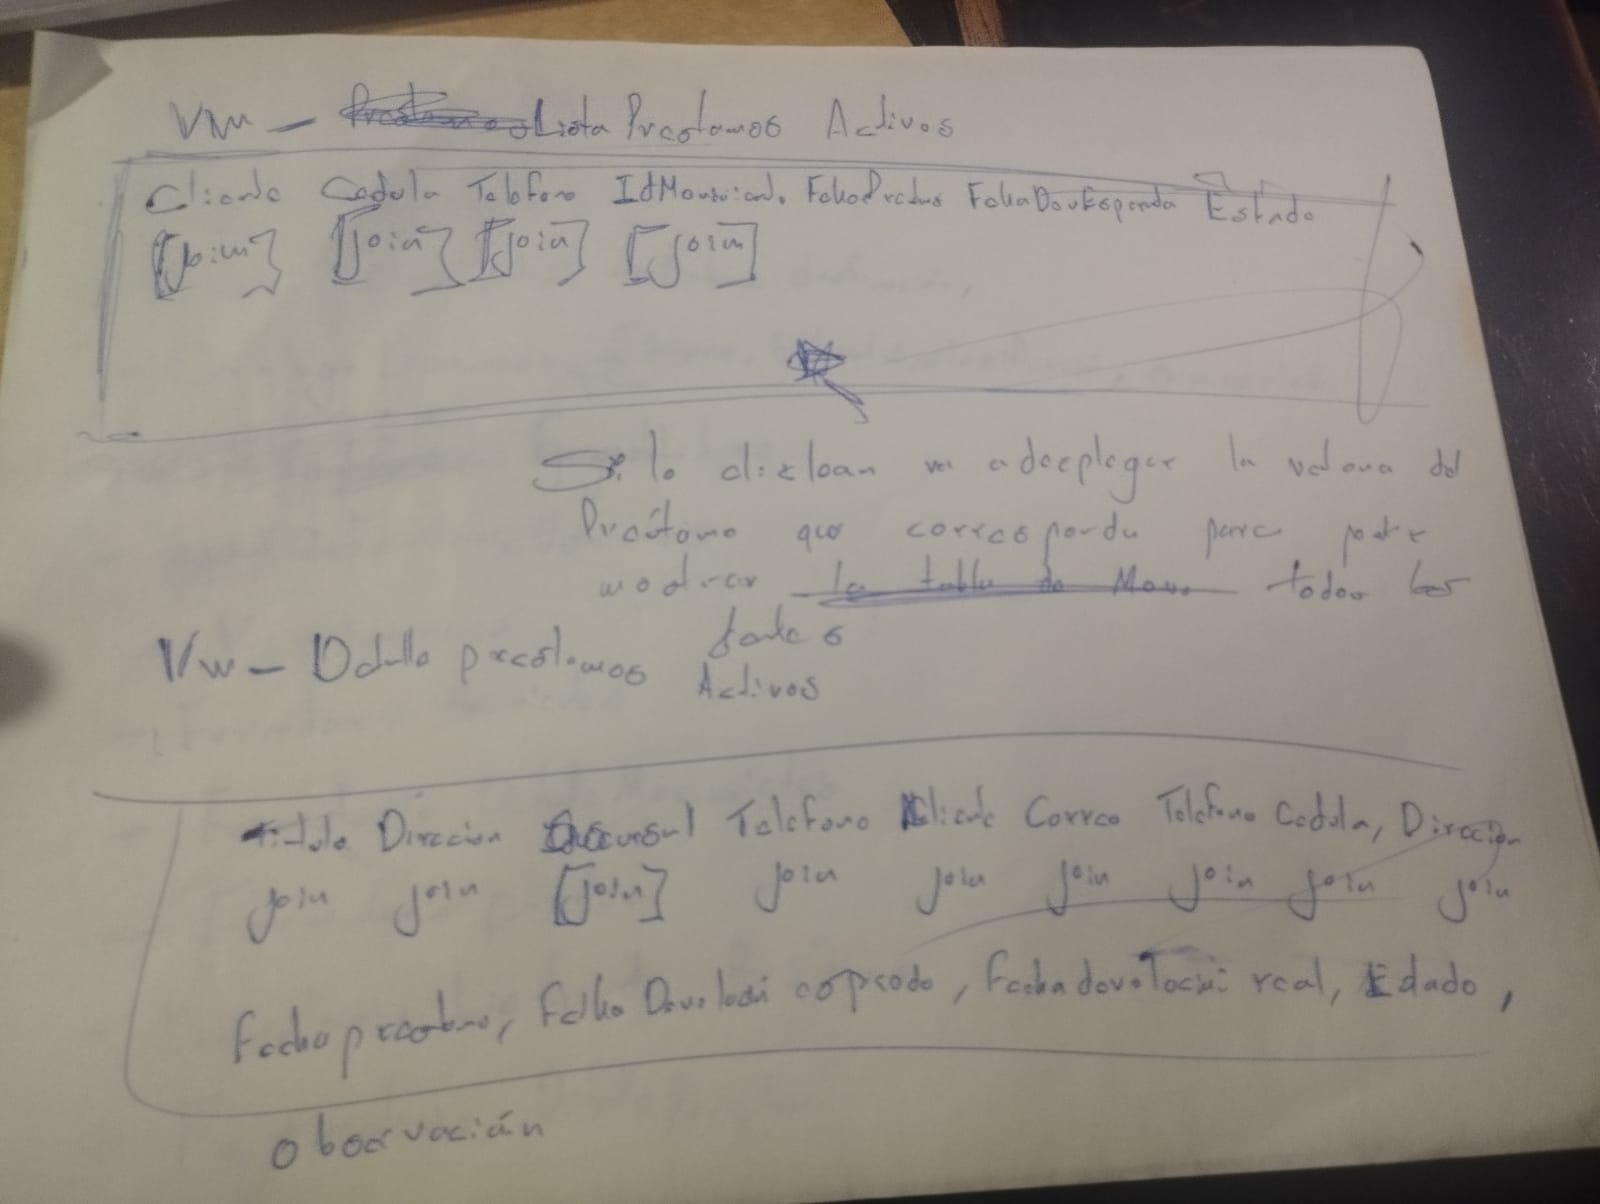 Vw - Lista Prestamos Activos
Cliente Cedula Telefono FechaDevEsperada Estado
[join] [join] [join] [join]
Si lo clickan va a desplegar la ventana del
Préstamo que corresponda para poder
mostrar la tabla de Mov. todos los
datos
Vw - Detalle prestamos Activos
titulo Direccion Sucursal Telefono Cliente Correo Telefono Cedula, Direccion
join join [join] join join join join join join
Fecha prestamo, Fecha Devoluci esperado, Fecha devoluci real, Estado,
observación